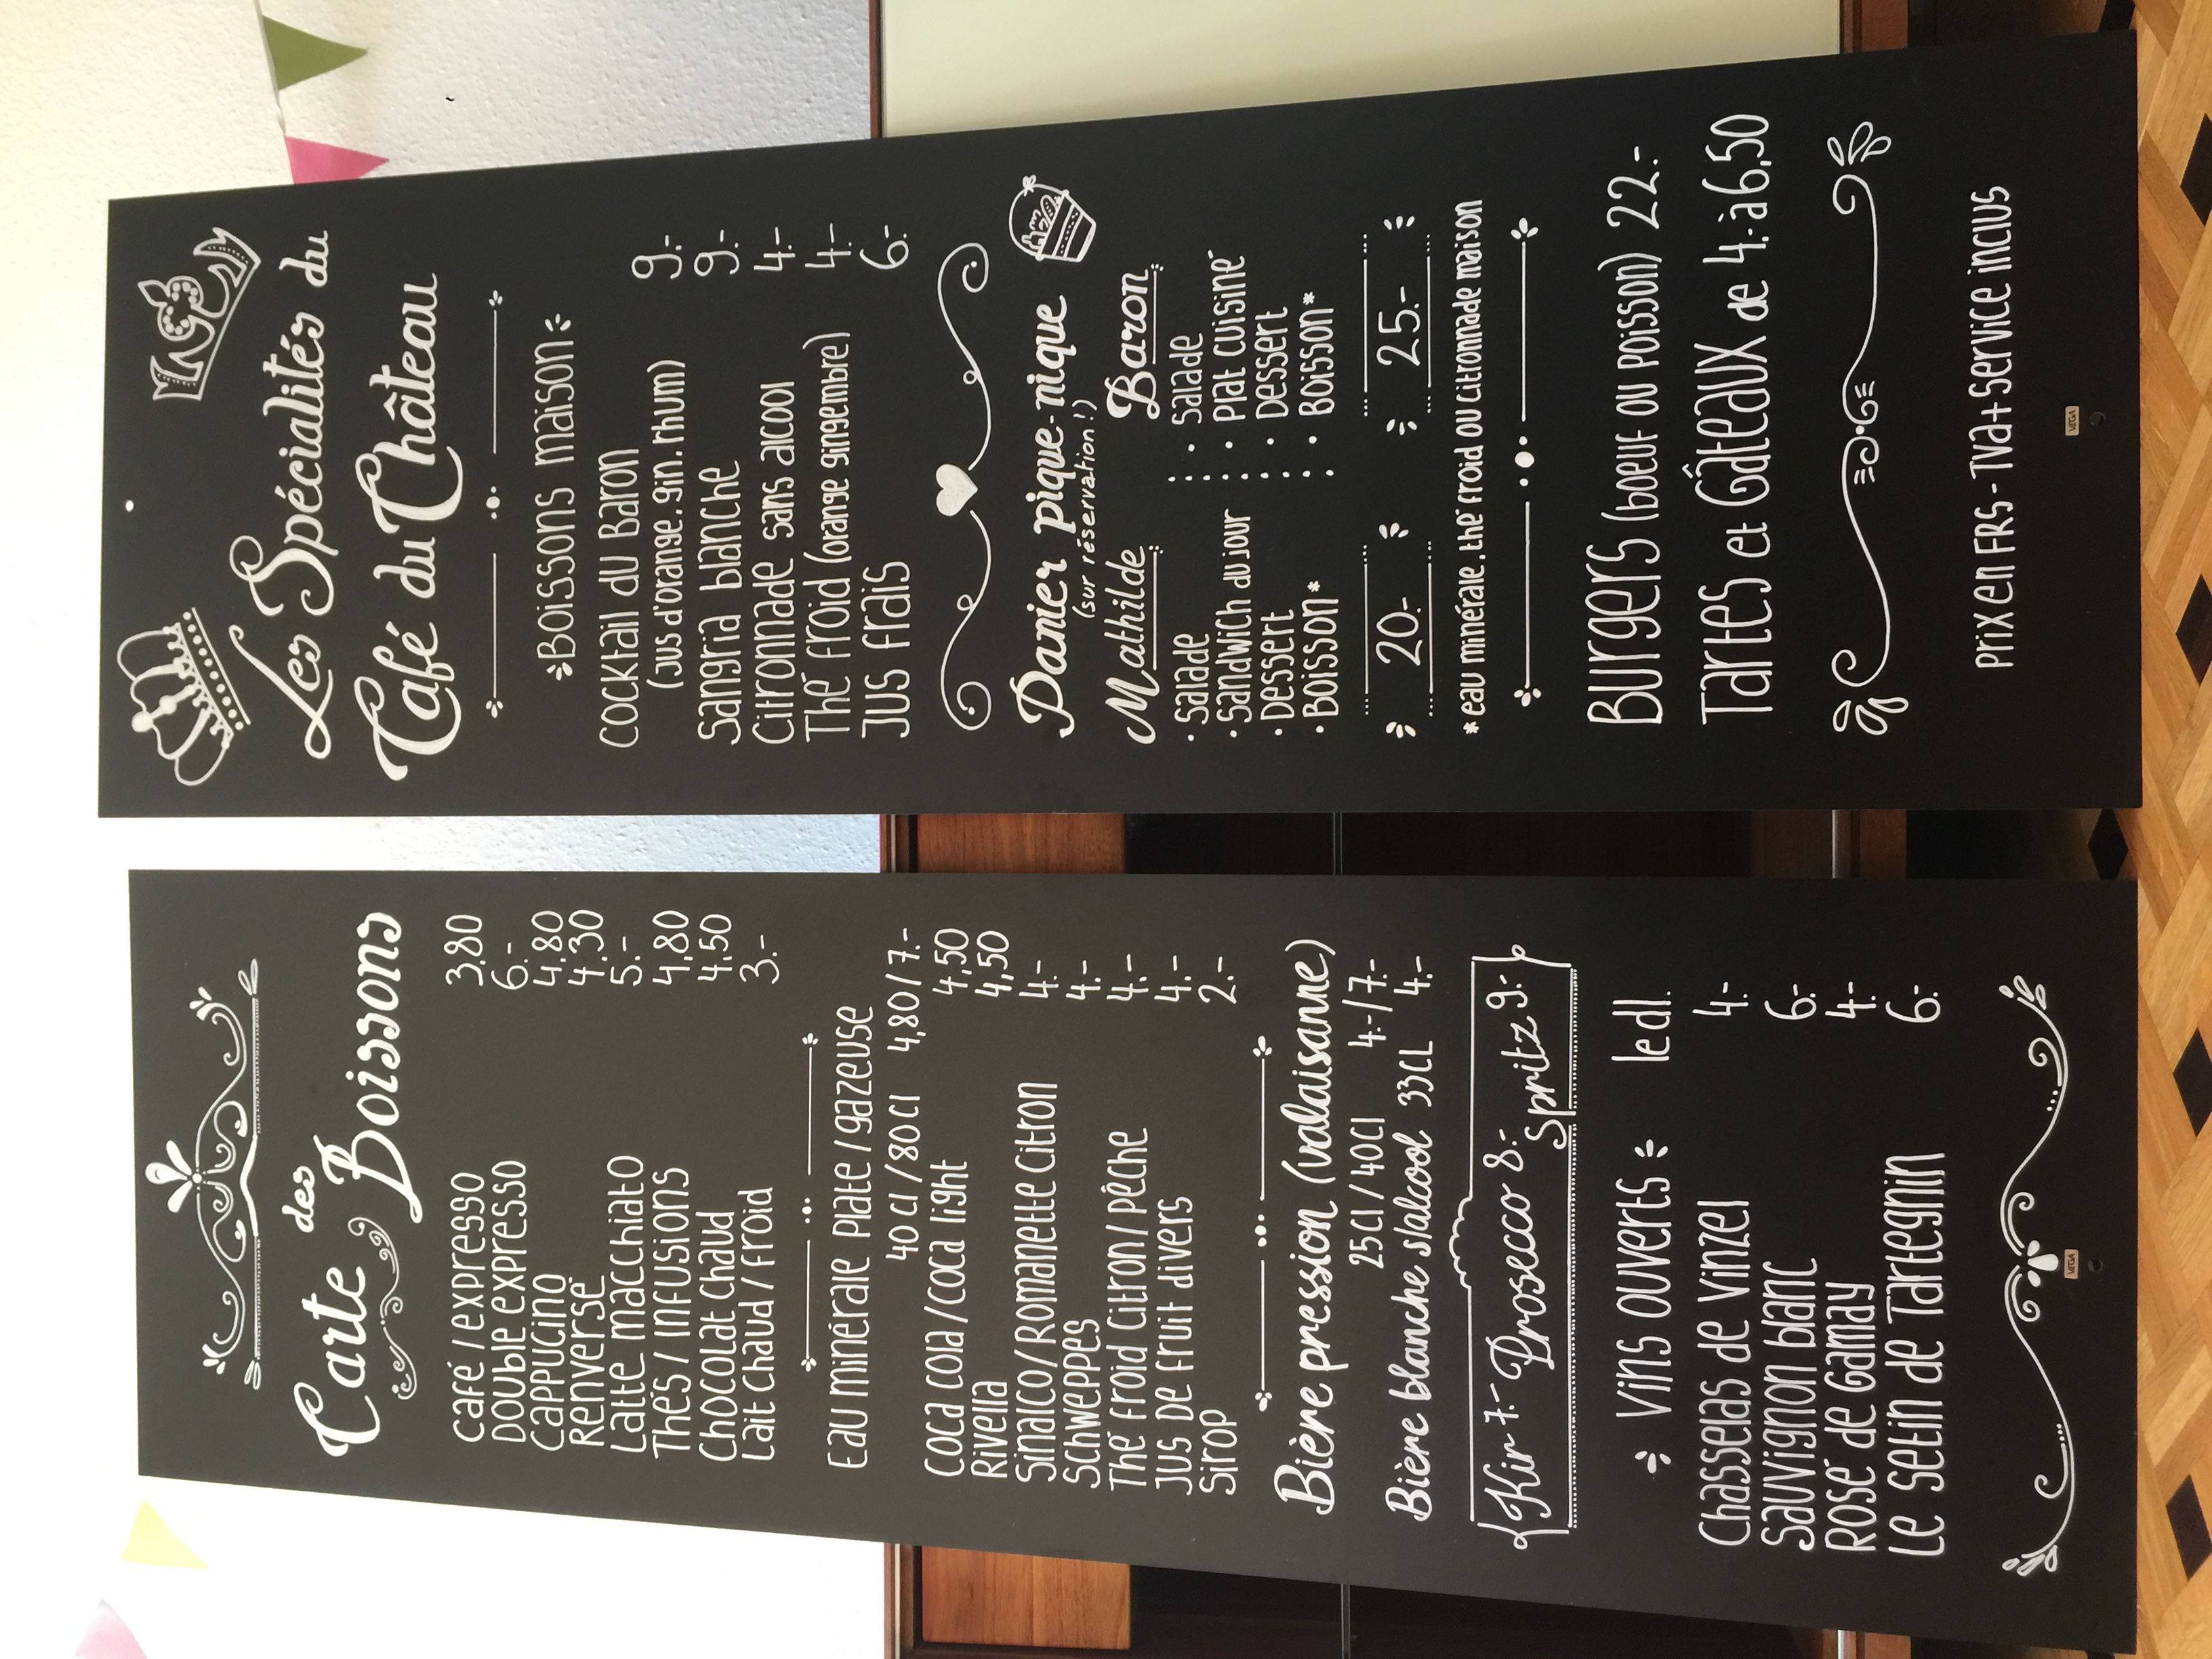 Carte des
Boissons
Café / expresso 3,80
Double expresso 6.-
Cappucino 4,80
Renversé 4,30
Latte macchiato 5.-
Thés / Infusions 4,80
Chocolat chaud 4,50
Lait chaud / froid 3.-
Eau minérale plate / gazeuse
40 cl / 80 cl 4,80 / 7.-
Coca cola / coca light 4,50
Rivella 4,50
Sinalco / Romanette citron 4.-
Schweppes 4.-
Thé froid citron / pêche 4.-
Jus de fruit divers 4.-
Sirop 2.-
Bière pression (valaisanne)
25 cl / 40 cl 4.- / 7.-
Bière blanche s/alcool 33 CL 4.-
Kir 7.- Prosecco 8.- Spritz 9.-
Vins ouverts le dl.
Chasselas de Vinzel 4.-
Sauvignon blanc 6.-
Rosé de Gamay 4.-
Le Setin de Tartegnin 6.-
VEGA
Les Spécialités du
Café du Château
Boissons maison
Cocktail du Baron 9.-
(jus d'orange, gin, rhum)
Sangria blanche 9.-
Citronnade sans alcool 4.-
Thé froid (orange gingembre) 4.-
Jus frais 6.-
Panier pique-nique
(sur réservation!)
Mathilde
· Salade
· Sandwich du jour
· Dessert
· Boisson*
20.-
Baron
· Salade
· Plat cuisiné
· Dessert
· Boisson*
25.-
*eau minérale, thé froid ou citronnade maison
Burgers (boeuf ou poisson) 22.-
Tartes et Gâteaux de 4.- à 6,50
Prix en FRS - TVA + Service inclus
VEGA